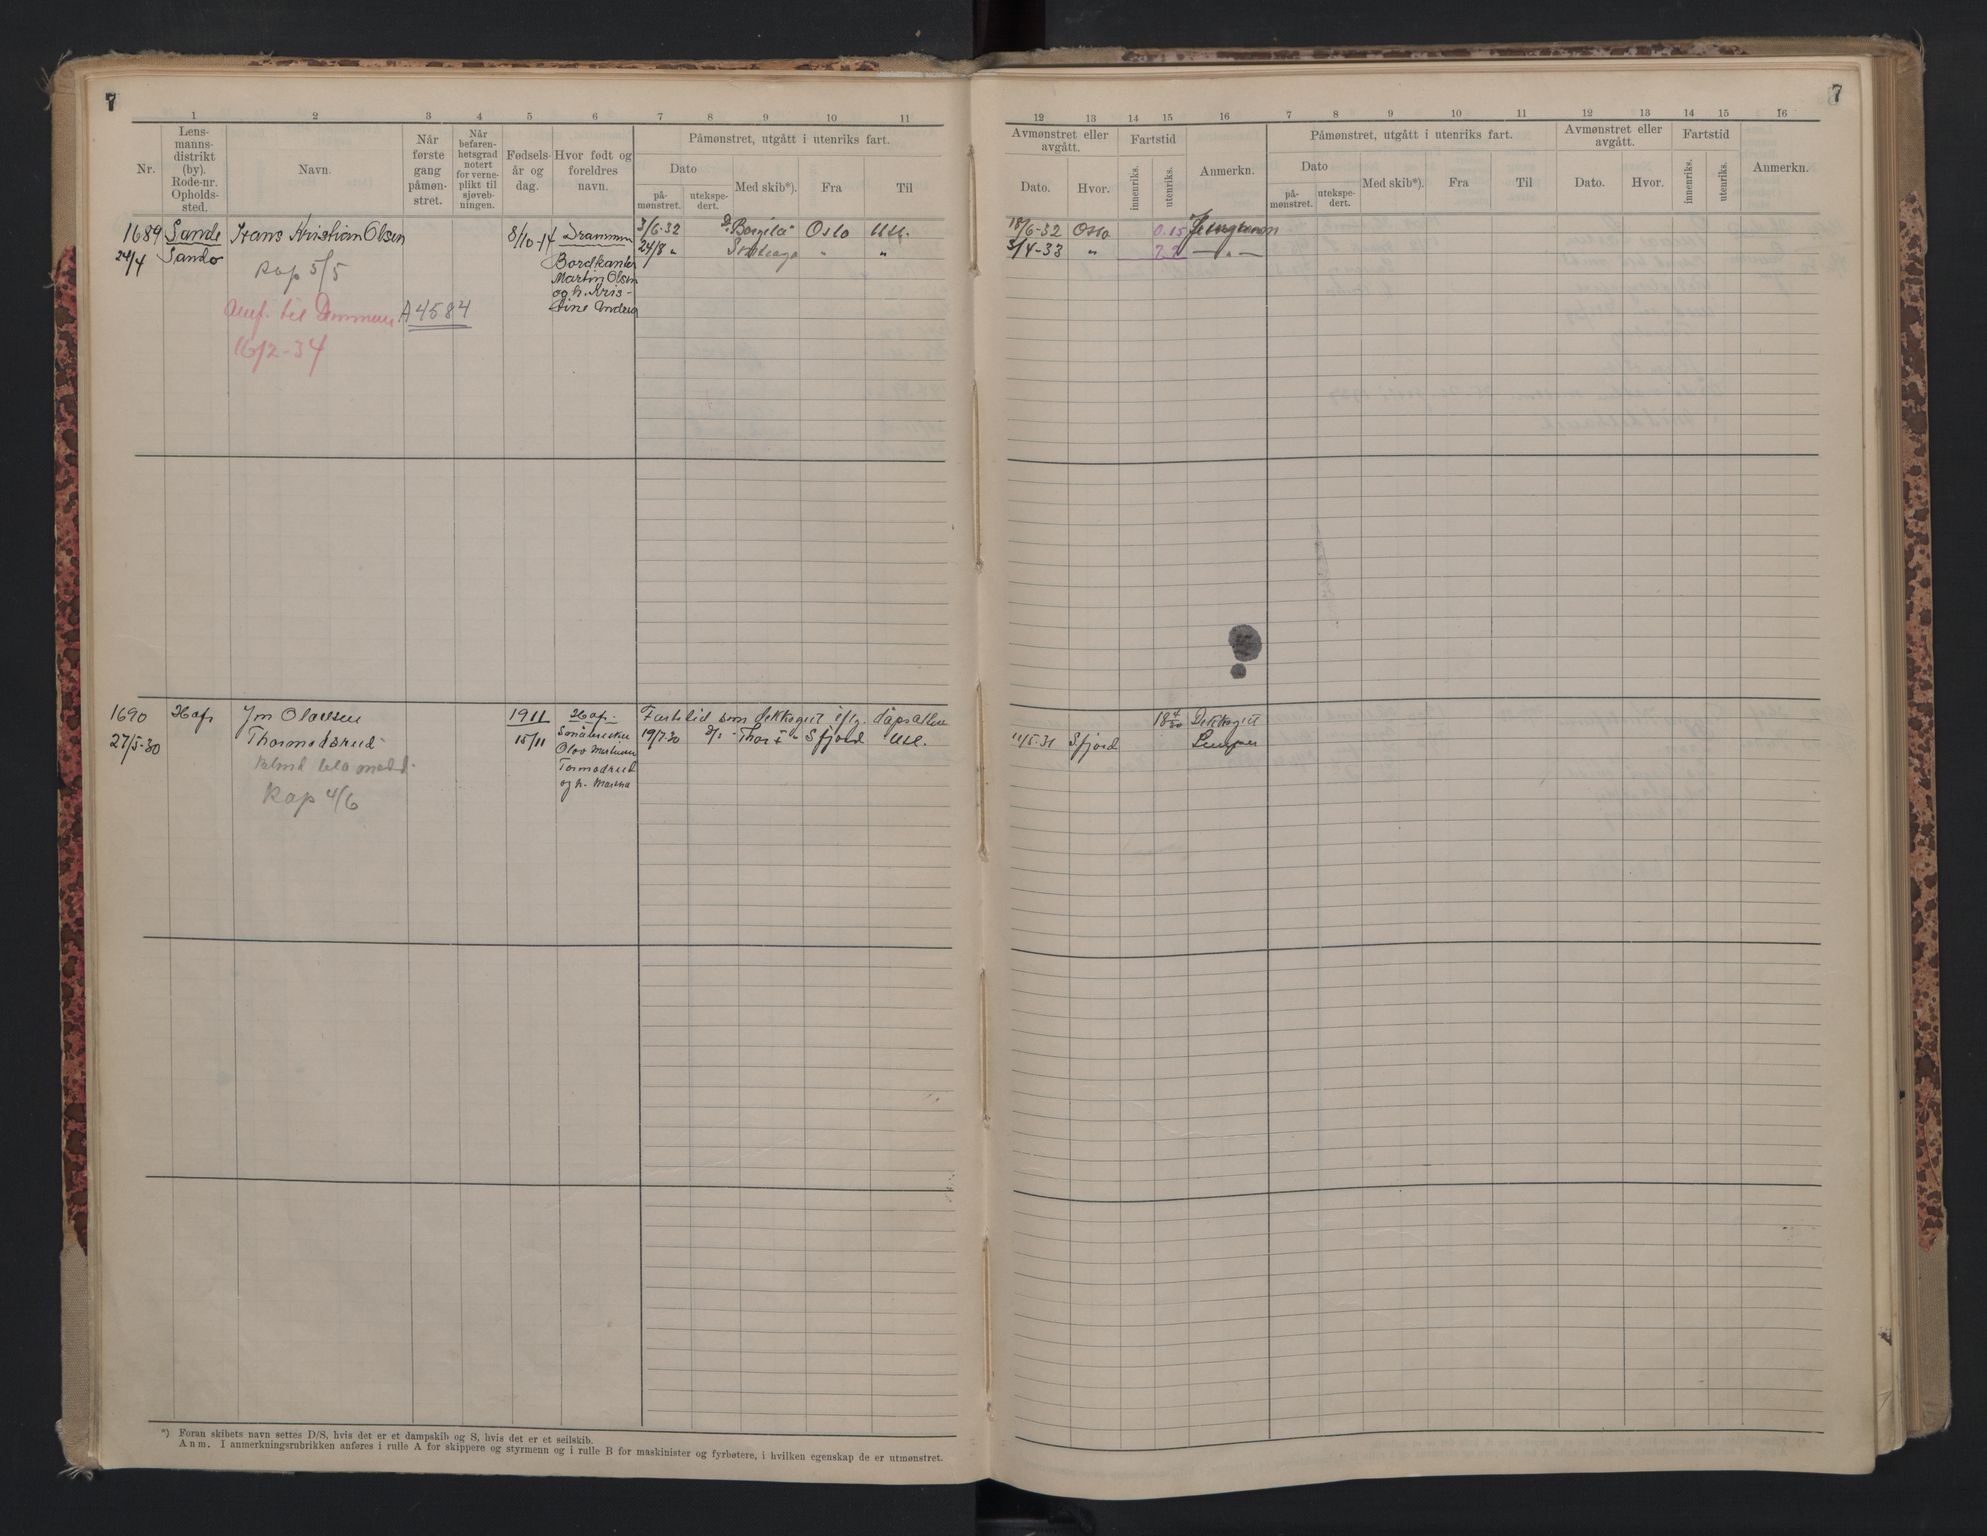 7
7
1 2 3 4 5 6 7 8 9 10 11
Nr.
Lens-
manns-
distrikt
(by).
Rode-nr.
Opholds-
sted.
Navn.
Når
første
gang
påmøn-
stret.
Når
befaren-
hetsgrad
notert
for verne-
plikt til
sjøveb-
ningen.
Fødsels-
år og
dag.
Hvor født og
foreldres
navn.
Påmønstret, utgått i utenriks fart.
Dato
på-
mønstret.
utekspe-
dert.
Med skib*).
Fra
Til
12 13 14 15 16 7 8 9 10 11 12 13 14 15 16
Avmønstret eller
avgått.
Dato.
Hvor.
Fartstid
innenriks.
utenriks.
Anmerkn.
Påmønstret, utgått i utenriks fart.
Dato
på-
mønstret.
utekspe-
dert.
Med skib*).
Fra
Til
Avmønstret eller
avgått.
Dato.
Hvor.
Fartstid
innenriks.
utenriks.
Anmerkn.
1689 Sande Hans Kristian Olsen 8/10-14 Drammen 3/6-32 Oslo Utl. 18/6-32 Oslo 0.15
24/4 Sande 24/8 " " " 3/4-33 " 7.7 — " —
Rap 5/5
Bordkanter
Martin Olsen
og h. Kris-
tine
til Drammen A4584
16/2-34
1690 Hof Olavsen 1911 Hof. Fartstid som dekksgut iflg. 18 4/30 Dekksgut
27/5-30 Thormodsrud 15/11 19/7-30 D/s "Thor I" Sfjord Utl. 11/5-31 Sfjord Lemper
Olov
Tormodsrud
og h.
Rap 4/6
*) Foran skibets navn settes D/S, hvis det er et dampskib og S, hvis det er et seilskib.
Anm. I anmerkningsrubrikken anføres i rulle A for skippere og styrmenn og i rulle B for maskinister og fyrbøtere, i hvilken egenskap de er utmønstret.